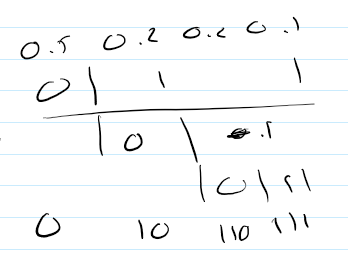 0.5 0.2 0.2 0.1
0 | 1 1 1
1 0 1 .1
1 0 1 1 1
0 10 110 111